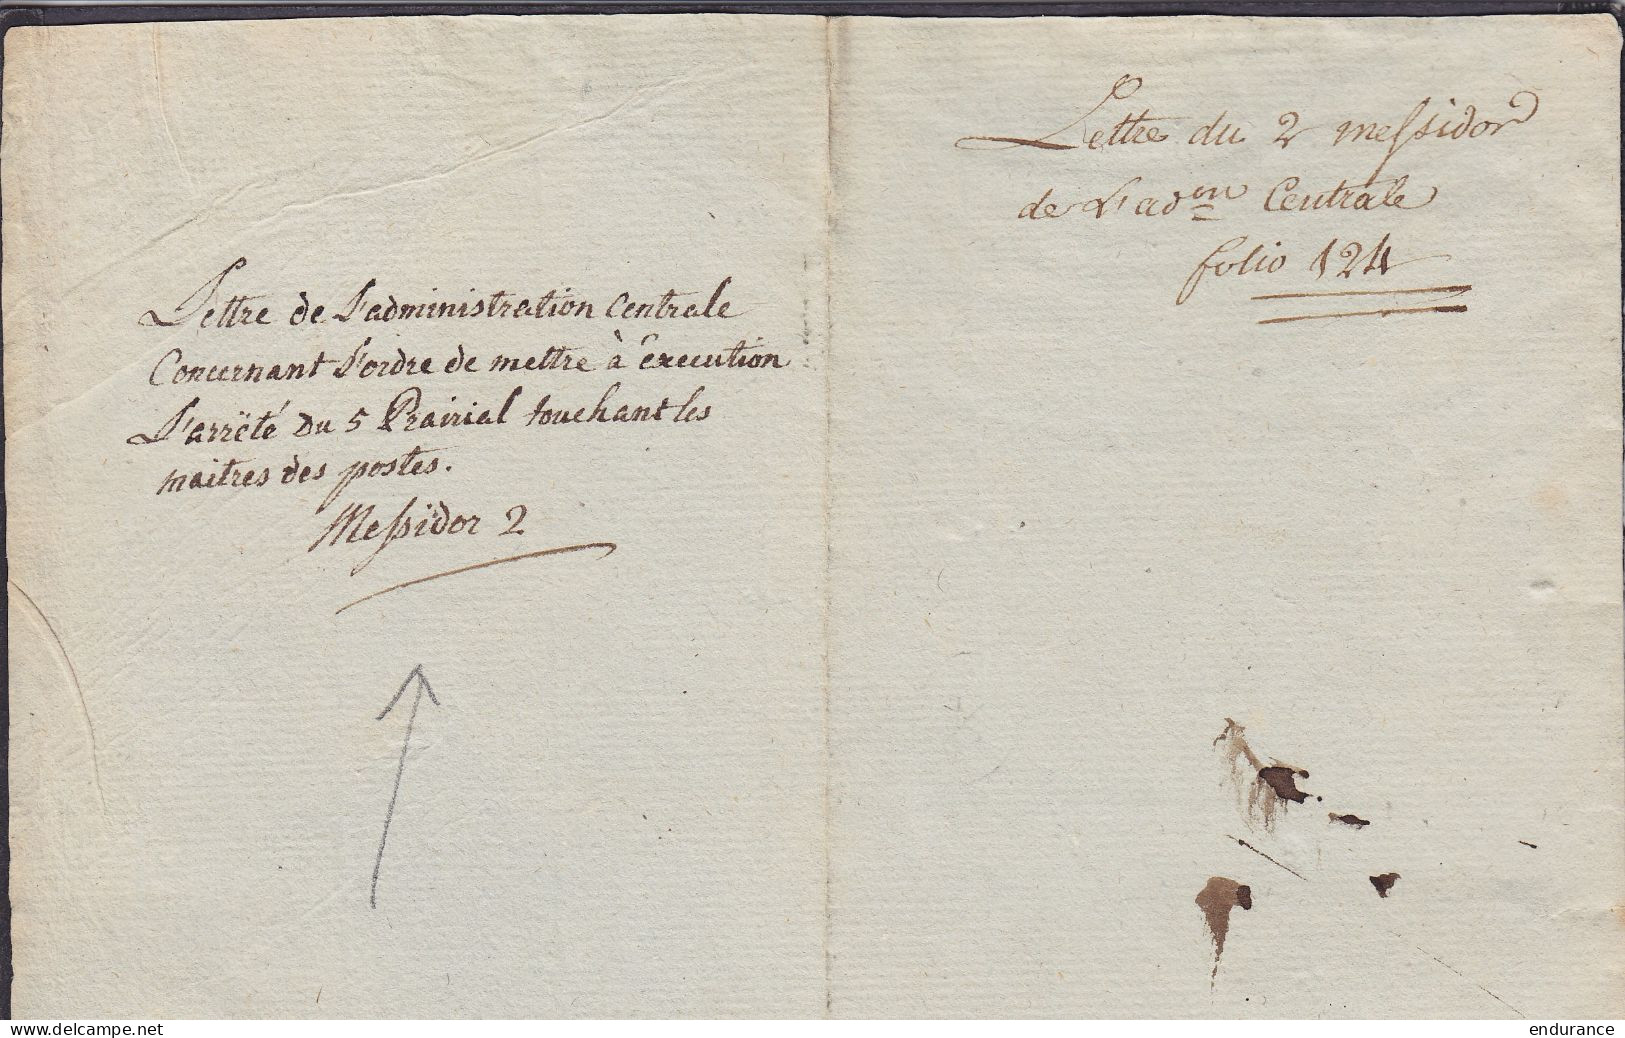 Lettre de L'administration Centrale
Concernant L'ordre de mettre à éxecution
L'arrëté du 5 Prairial touchant les
maitres des postes.
Meſsïdor 2
Lettre du 2 meſsidor
de L'adon Centrale
folio 124
delcampe.net
endurance